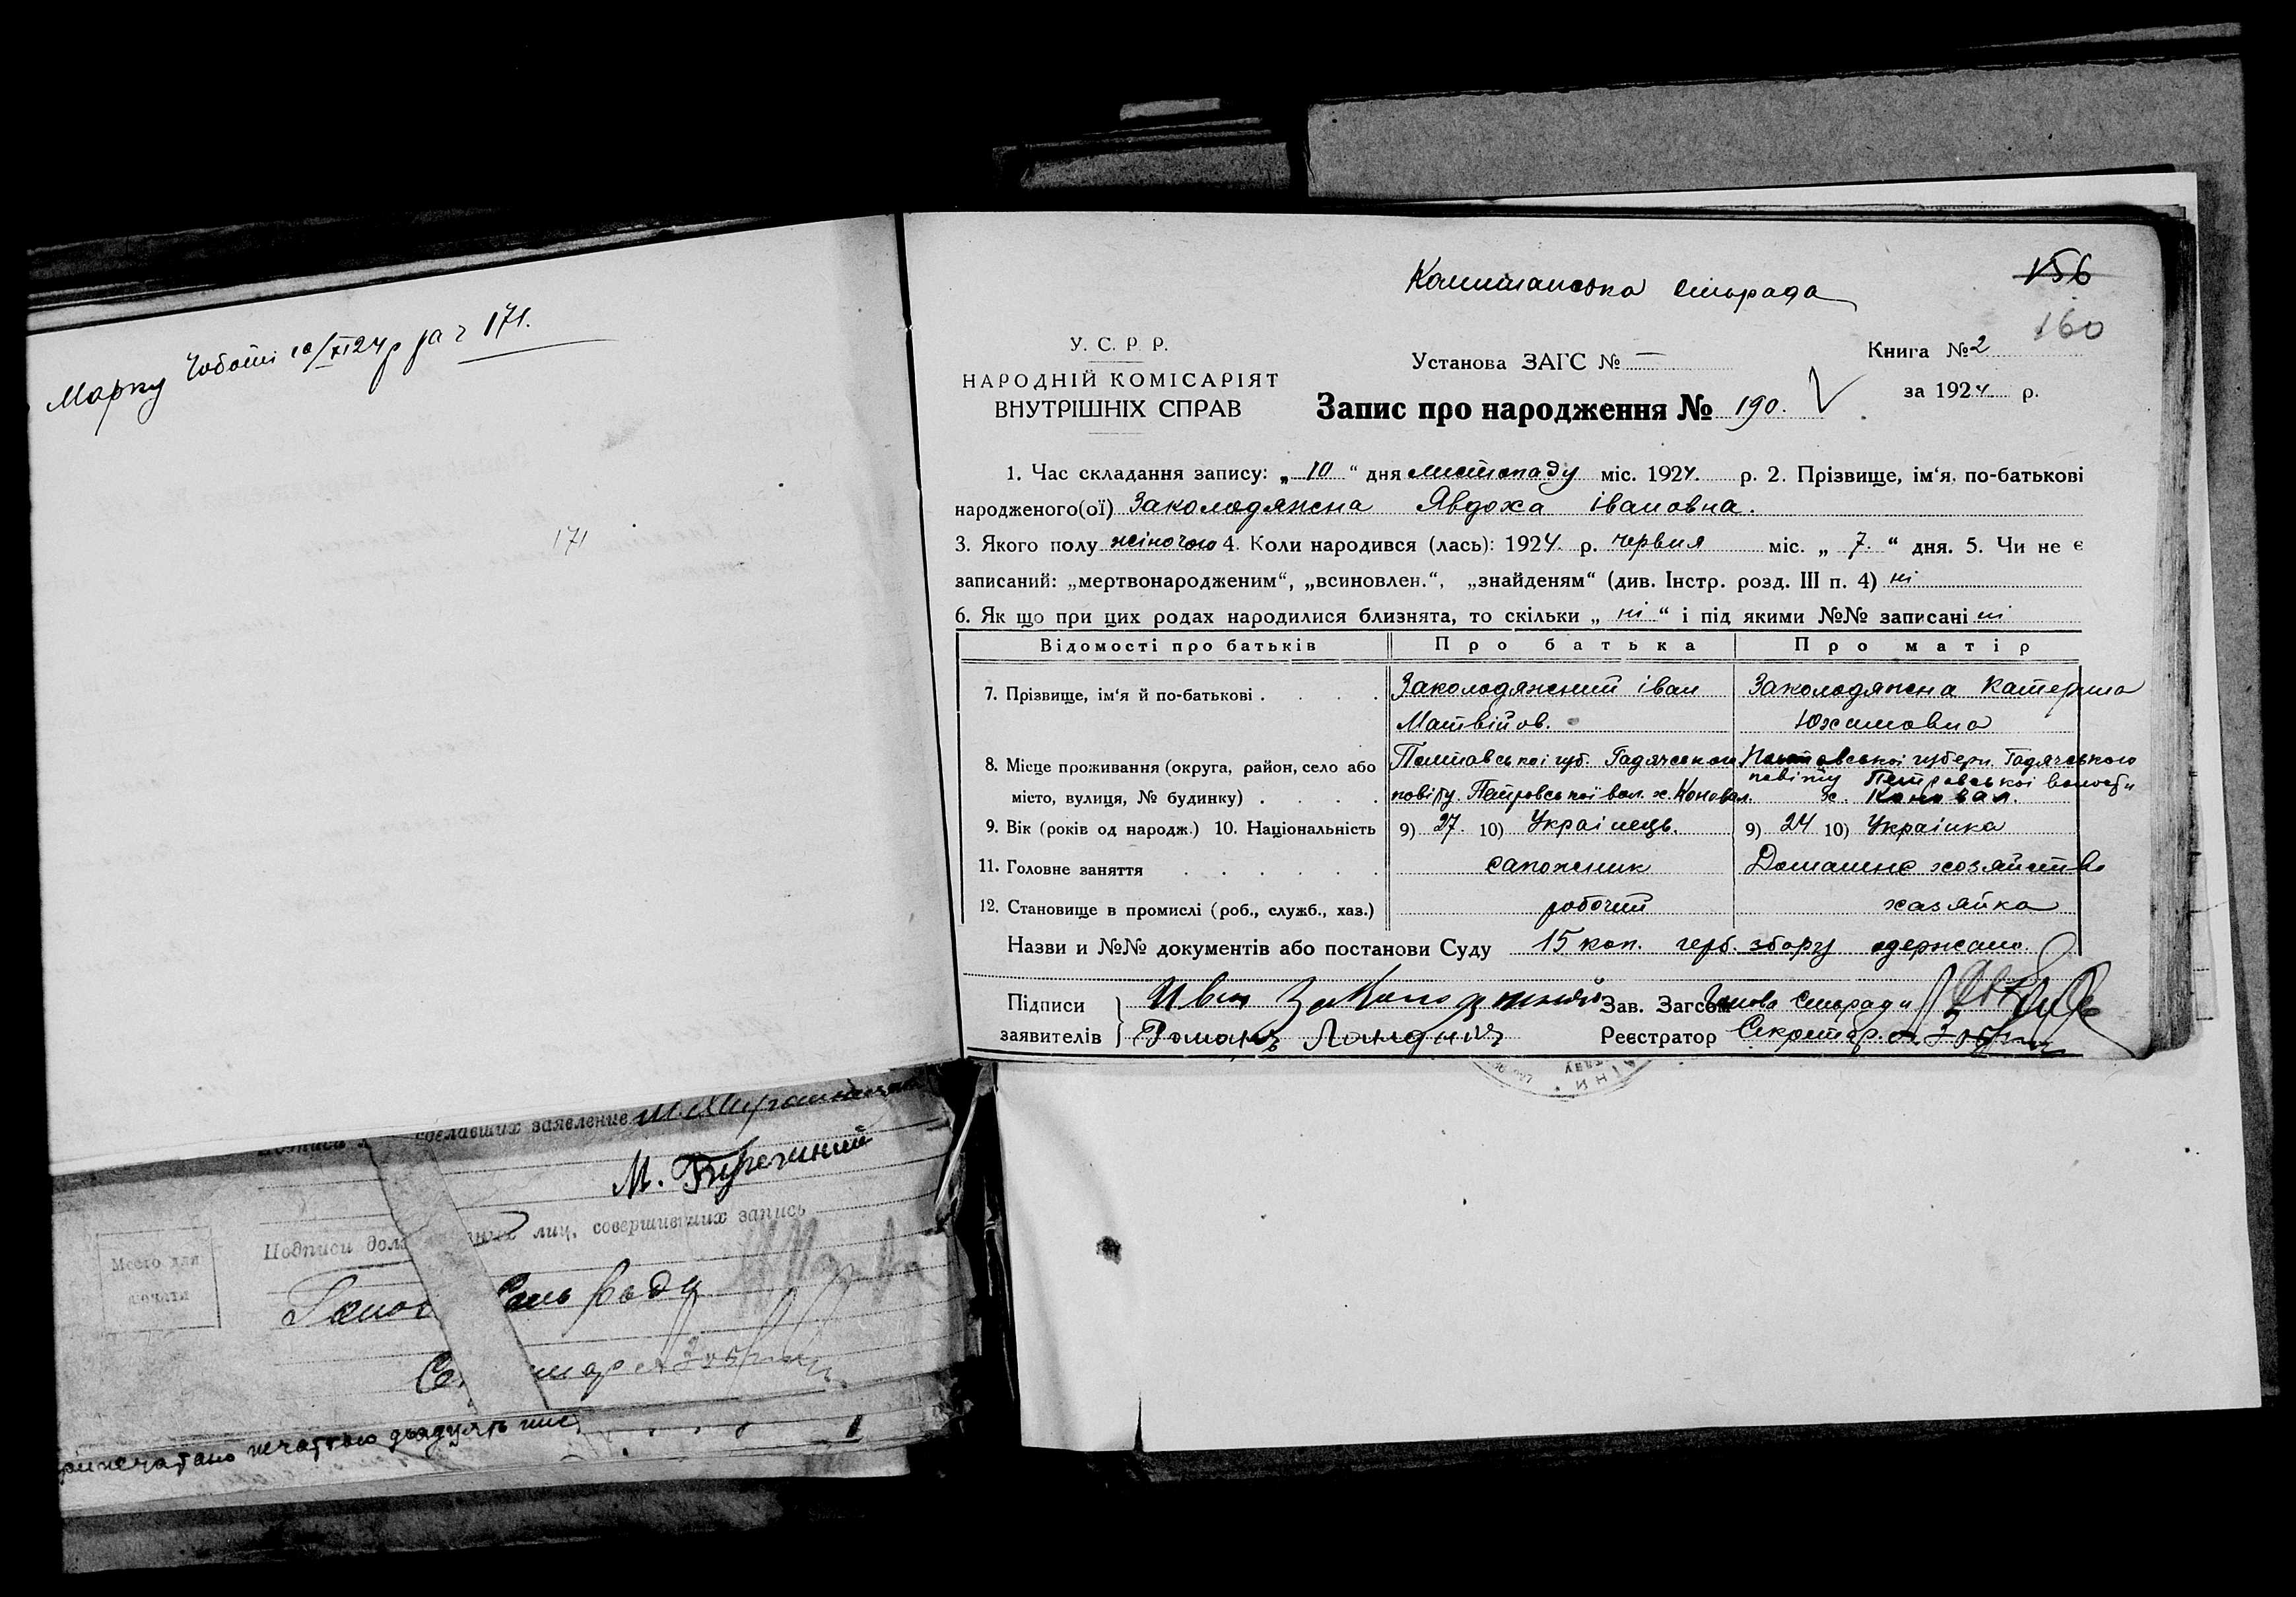 Марку Чоботі 10/XI 24 р за № 171.
171
сделавших заявление
М.
Место для печати
Подписи
лиц, совершивших запись
печаттою двадцять
сільрада
156
160
У. С. Р. Р.
НАРОДНІЙ КОМІСАРІЯТ
ВНУТРІШНІХ СПРАВ
Установа ЗАГС № —
Книга № 2
за 1924 р.
Запис про народження № 190.
1. Час складання запису: „ 10 “ дня листопаду міс. 1924. р. 2. Прізвище, ім‘я, по-батькові
народженого(ої) Заколодяжна Явдоха івановна.
3. Якого полу жіночого 4. Коли народився (лась): 1924. р. червня міс. „ 7. “ дня. 5. Чи не є
записаний: „мертвонародженим“, „всиновлен.“, „знайденям“ (див. Інстр. розд. III п. 4) ні
6. Як що при цих родах народилися близнята, то скільки „ ні “ і під якими №№ записані ні
Відомості про батьків Про батька Про матір
7. Прізвище, ім‘я й по-батькові . . . . Заколодяжний іван Заколодяжна Катерина
Матвійов. Юхимовна
8. Місце проживання (округа, район, село або Полтавської губ. Гадяченськ Полтавської губерн. Гадячського
місто, вулиця, № будинку) . . . . повіту. Петровської вол. х. Коновал. повіту Петровської волости х. Коновал.
9. Вік (років од народж.) 10. Національність 9) 27. 10) Українець. 9) 24 10) Українка
11. Головне заняття . . . . . . сапожник Домашнє хозяйство
12. Становище в промислі (роб., служб., хаз.) робочий хазяйка
Назви и №№ документів або постанови Суду 15 коп. герб. збору одержано.
Підписи Иван Заколодяжный Зав. Загсом Голова Сільради
заявителів Романъ Реєстратор Секретар